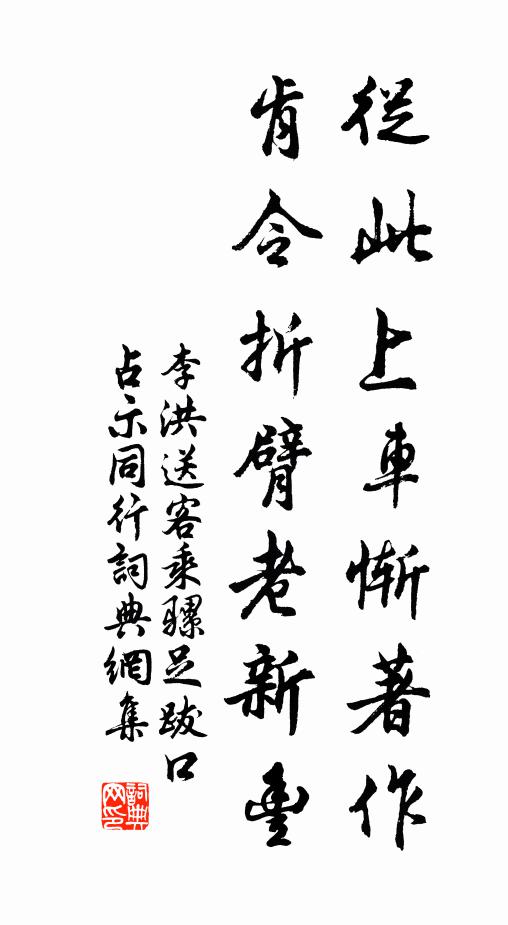 從此上車慚著作
肯令折臂老新豐
李洪送客乘騾足跛口
占示同行詞典網集
詞典网印